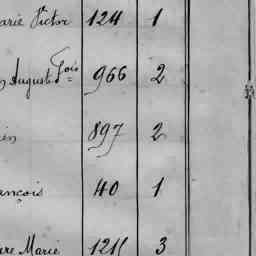 arie Victor 124 1
n Auguste Fois 966 2
in 897 2
ançois 40 1
re Marie 3